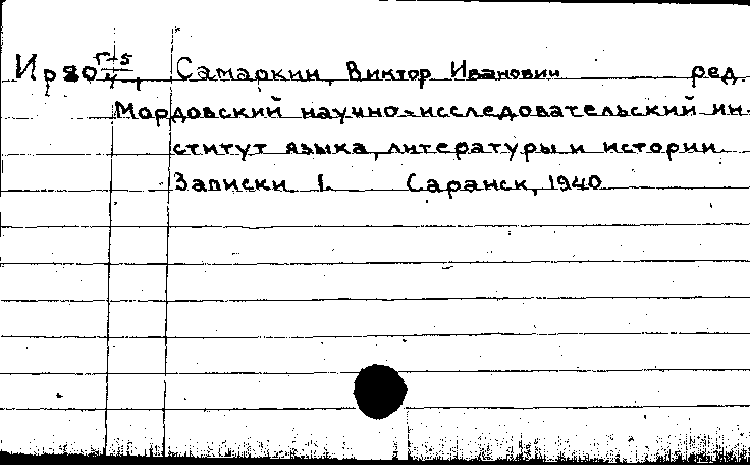 Самаркин, Виктор Иванович ред.
Мордовский научно-исследовательский ин-
ститут языка, литературы и истории.
Записки 1. Саранск, 1940